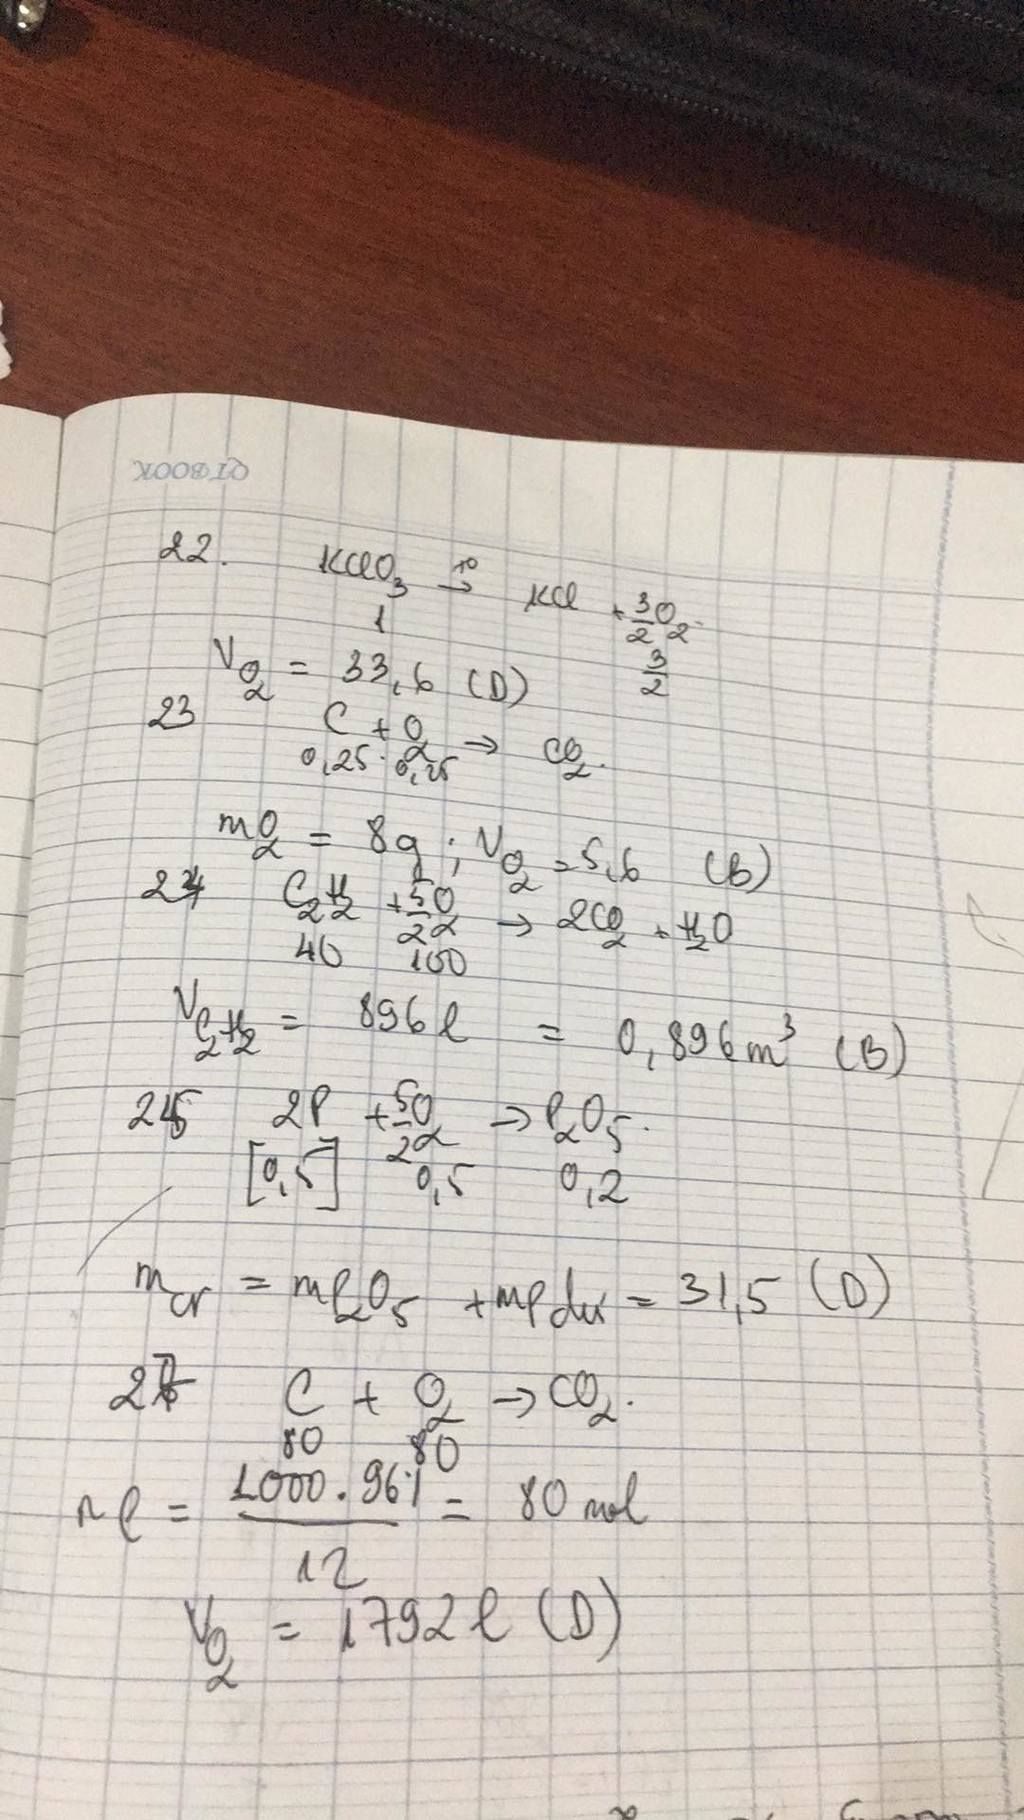 QTBOOK
22. KClO3 t° → KCl + 3/2 O2
1 3/2
VO2 = 33,6 (D)
23 C + O2 → CO2.
0,25. 0,25
mO2 = 8g ; VO2 = 5,6 (B)
24 C2H2 + 5/2 O2 → 2CO2 + H2O
40 100
VC2H2 = 896 l = 0,896 m³ (B)
25 2P + 5/2 O2 → P2O5.
[0,5] 0,5 0,2
mcr = mP2O5 + mP dư = 31,5 (D)
27 C + O2 → CO2.
80 80
nC = 1000.96% / 12 = 80 mol
VO2 = 1792 l (D)